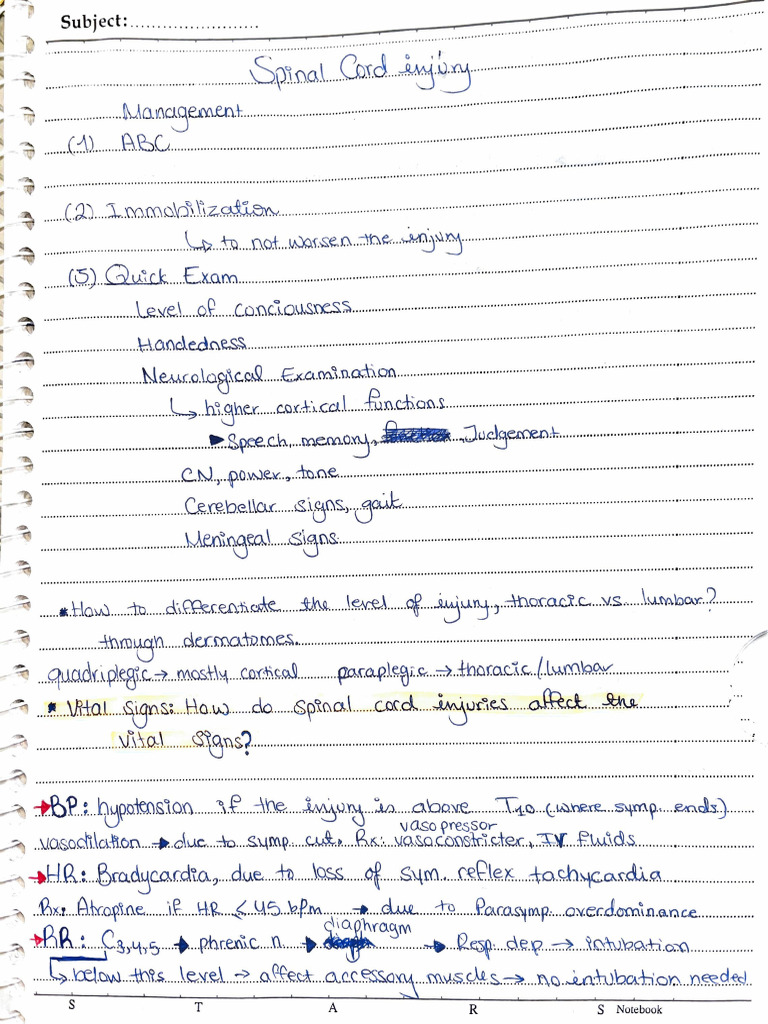 Subject:.......................
Spinal Cord injury
Management
(1) ABC
(2) Immobilization
↳ to not worsen the injury
(5) Quick Exam
Level of conciousness
Handedness
Neurological Examination
↳ higher cortical functions
▶ Speech, memory, , Judgement
CN, power, tone
Cerebellar signs, gait
Meningeal signs
* How to differentiate the level of injury, thoracic vs. lumbar?
through dermatomes.
quadriplegic → mostly cortical paraplegic → thoracic/lumbar
* Vital Signs: How do spinal cord injuries affect the
vital signs?
→ BP: hypotension if the injury is above T10 (where symp. ends)
vasodilation → due to symp cut. Rx: vasoconstricter, IV fluids
vasopressor
→ HR: Bradycardia, due to loss of sym. reflex tachycardia
Rx: Atropine if HR ≤ 45 bpm → due to Parasymp. overdominance
→ RR: C3,4,5 → phrenic n → diaphragm → Resp. dep → intubation
↳ below this level → affect accessory muscles → no intubation needed
S T A R S Notebook